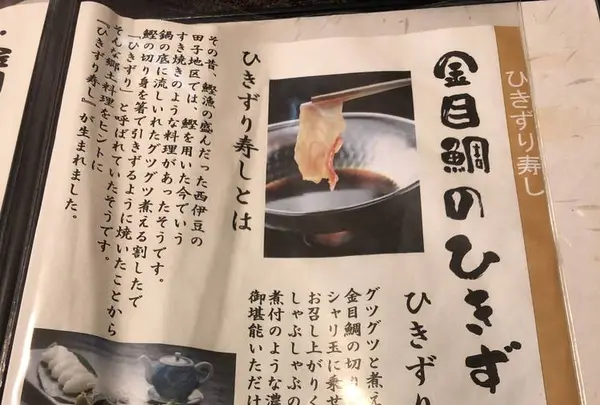 ひきずり寿し
金目鯛のひきず
ひきずり
グツグツと煮え
金目鯛の切り
シャリ玉に乗せ
お召し上がりく
しゃぶしゃぶの
煮付のような濃
御堪能いただけ
ひきずり寿しとは
その昔、鰹漁の盛んだった西伊豆の
田子地区では、鰹を用いた今でいう
すき焼きのような料理があったそうです。
鍋の底に流しいれたグツグツ煮える割したで
鰹の切り身を箸で引きずるように焼いたことから
「ひきずり」と呼ばれていたそうです。
そんな郷土料理をヒントに
『ひきずり寿し』が生まれました。